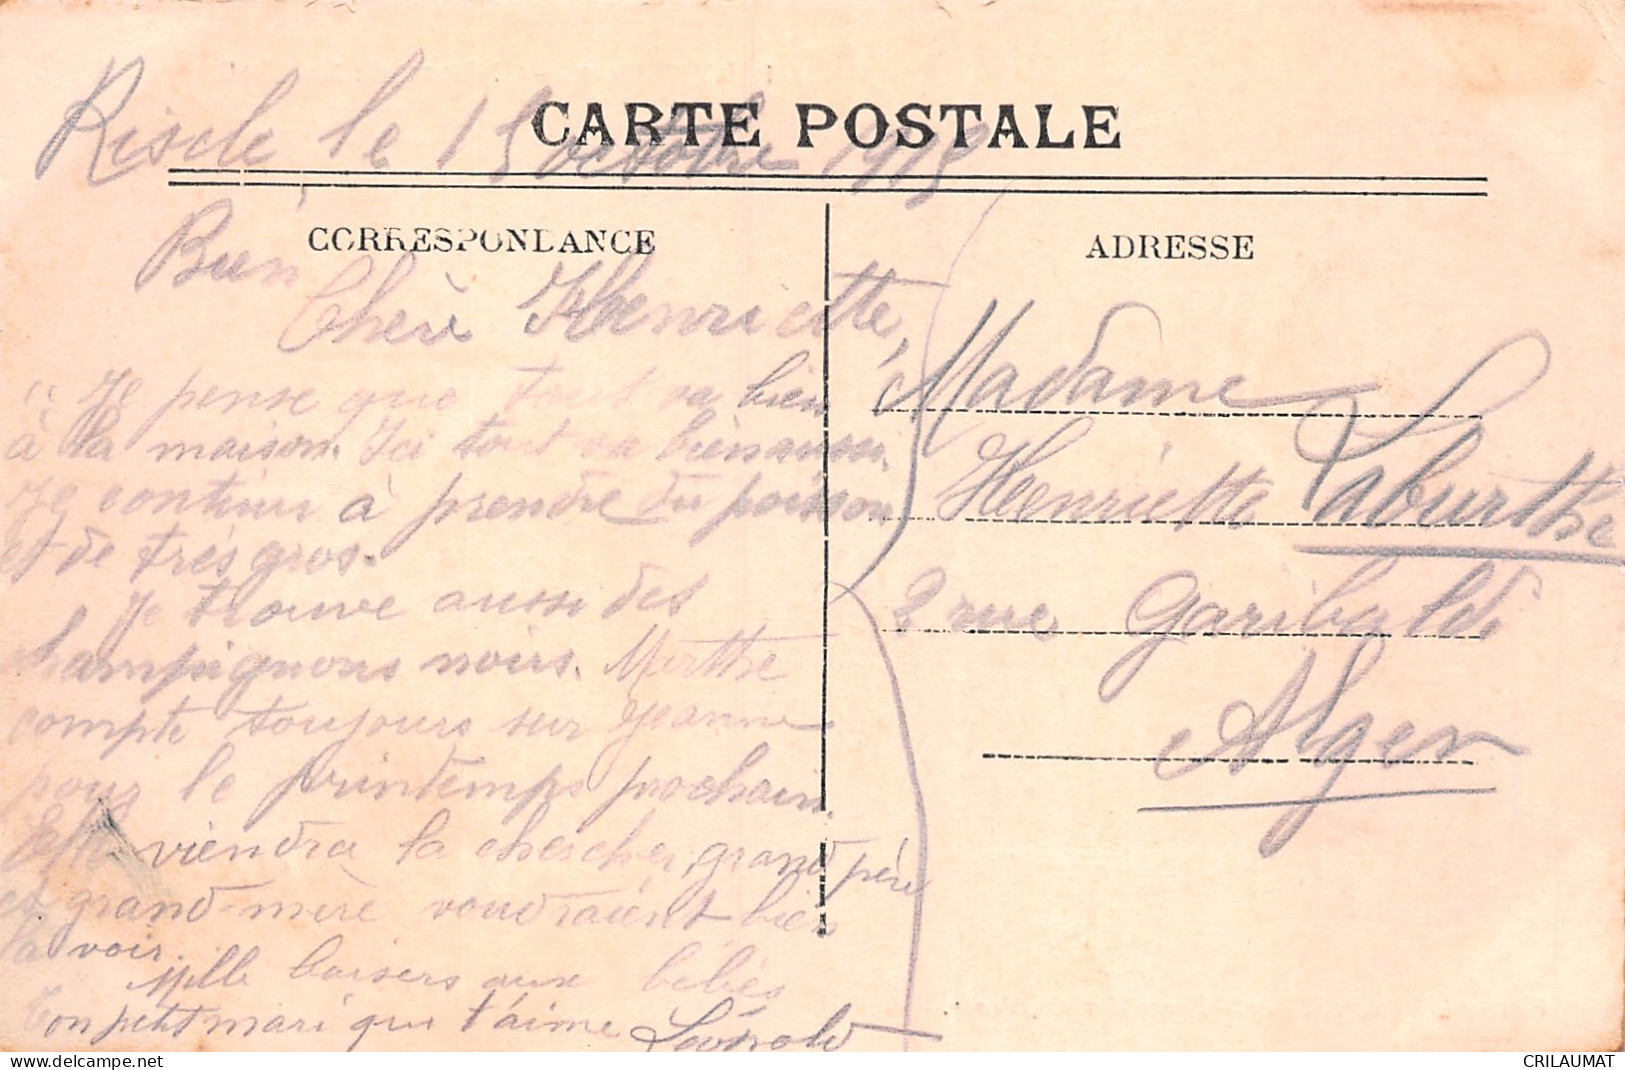 CARTE POSTALE
le 15 octobre 1915
CORRESPONDANCE
ADRESSE
Bien
Chère Henriette,
Je pense que tout va bien
à la maison. Ici tout va bien aussi.
Je continue à prendre du poisson
et de très gros.
Je trouve aussi des
champignons noirs. Marthe
compte toujours sur Jeanne
pour le printemps prochain.
Elle viendra la chercher, grand père
et grand-mère voudraient bien
la voir.
Mille baisers aux bébés
Ton petit mari qui t'aime Léopold
Madame
Henriette Laburthe
2 rue Garibaldi
Alger
www.delcampe.net
CRILAUMAT